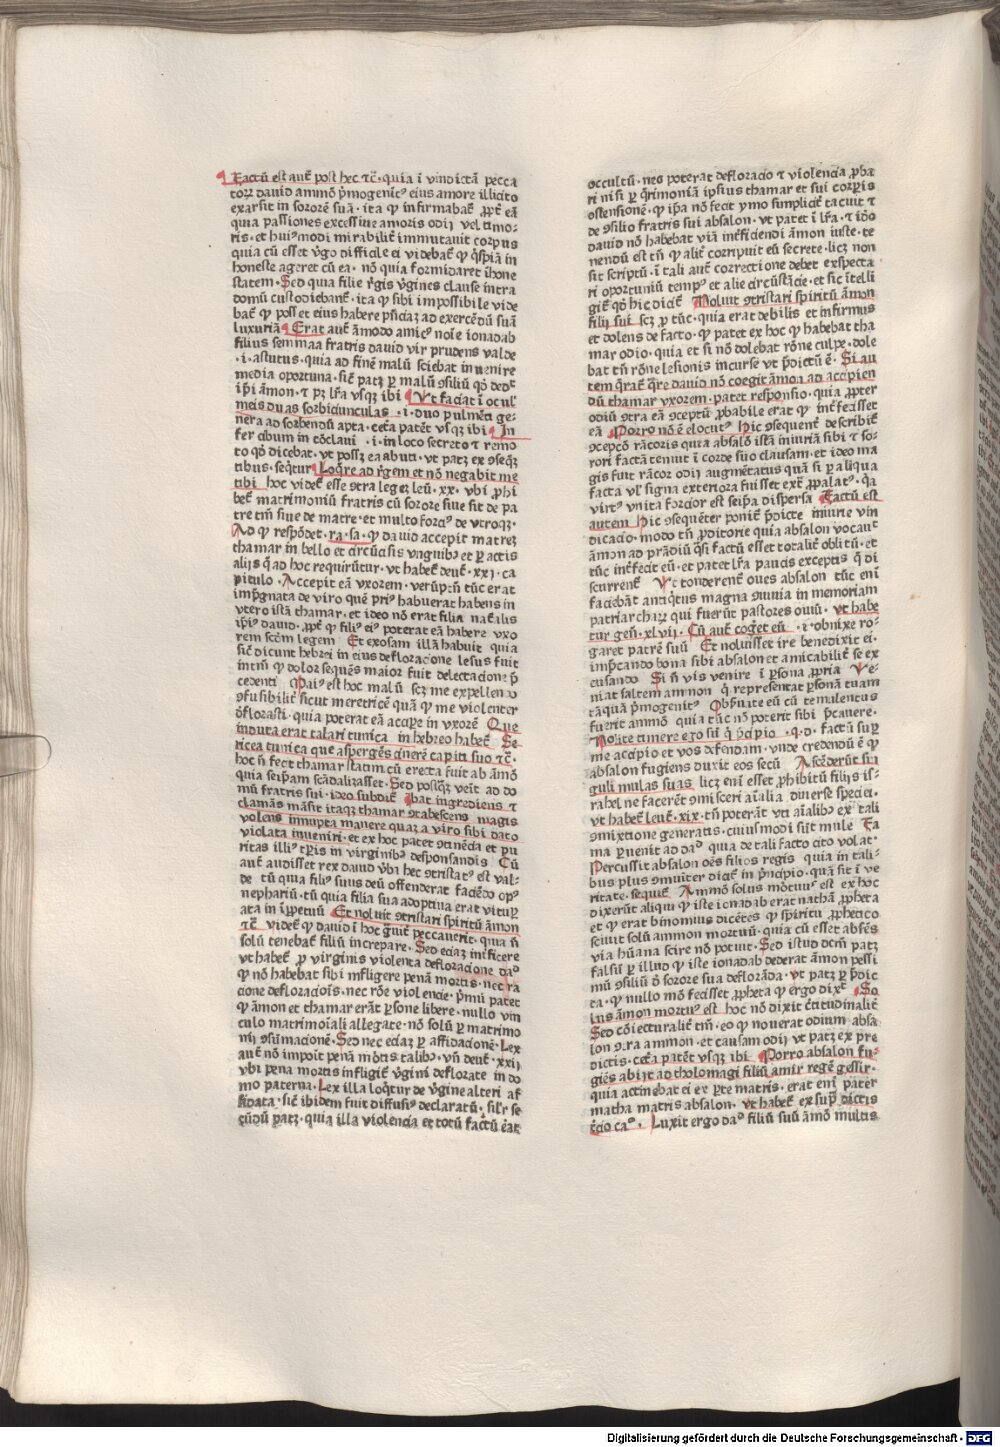 Factū est aut̄ post hec ⁊c̄· quia ī vindictā pecca
toꝝ dauid ammō p̄mogenitꝰ eius amore illicito
exarsit in sororē suā· ita ꝙ infirmabat̄ ꝓpt̄ eā
quia passiones excessiue amoris odij vel timo-
ris· et huiꝰmodi mirabilit̄ immutauit corpus
quia cū esset v̄go difficile ei videbat̄ ꝙ q̄spiā in
honeste ageret cū ea· nō quia formidaret īhone
statem· Sed quia filie r̄gis v̄gines clause intra
domū custodiebant̄· ita ꝙ sibi impossibile vide
bat̄ ꝙ posset eius habere p̄sciaȝ ad exercēdū suā
luxuriā Erat aut̄ āmodo amicꝰ noīe ionadab
filius semmaa fratris dauid vir prudens valde
·i· astutus· quia ad finē malū sciebat inuenire
media oportuna· sic̄ patȝ ꝑ malū ꝯsiliū qd̄ dedᵗ
ip̄i āmon· ⁊ pȝ lr̄a vsqȝ ibi Ut faciat ī ocul'
meis duas sorbiciunculas ·i· duo pulmēta ge-
nera ad sorbendū apta· cetȩ̄a patēt vsqȝ ibi In
fer cibum in cōclaui ·i· in loco secreto ⁊ remo
to qd̄ dicebat· vt possȝ ea abuti· vt patȝ ex ꝯseq̄ȝ
tibus· seq̄tur Loq̄re ad r̄gem et nō negabit me
tibi hoc videt̄ esse ꝯtra legeȝ leū· xx· vbi ꝓhi
bet̄ matrimoniū fratris cū sorore siue sit de pa
tre tm̄ siue de matre· et multo forciꝰ de vtroqȝ·
Ad qd̄ respōdet· ra· sa· ꝙ dauid accepit matreȝ
thamar in bello et circūcisis vnguibꝰ et ꝑactis
alijs q̄ ad hoc requirūtur· vt habet̄ deut̄· xxj· ca
pitulo· Accepit eā vxorem· verūptn̄ tūc erat
imp̄gnata de viro quē priꝰ habuerat habens in
vtero istā thamar· et ideo nō erat filia nat̄alis
ip̄iꝰ dauid· ꝓpt̄ ꝙ filiꝰ eiꝰ poterat eā habere vxo
rem scd̄m legem Et exosam illā habuit quia
sic̄ dicunt hebrei in eius defloracione lesus fuit
intm̄ ꝙ dolor sequēs maior fuit delectacione p̄
cedenti Maiꝰ est hoc malū scȝ me expellendo
ꝯfusibilit̄ sicut meretricē quā ꝙ me violenter
d̄florasti· quia poterat eā accipe in vxorē Que
induta erat talari tunica in hebreo habet̄ Se
ricea tunica que aspergēs cinerē capiti suo ⁊c̄·
hoc n̄ fecit thamar statim cū erecta fuit ab āmō
quia seip̄am scādalizasset· Sed postqȝ veīt ad do
mū fratris sui· ideo subdit̄ Ibat ingrediens ⁊
clamās māsit itaqȝ thamar ꝯtabescens magis
volens innupta manere quaȝ a viro sibi dato
violata inueniri· et ex hoc patet ꝯtinēcia et pu
ritas illiꝰ tꝑis in virginibꝰ desponsandis Cū
aut̄ audisset rex dauid v̄bi hec ꝯtristatꝰ est val-
de tū quia filiꝰ suus deū offenderat faciēdo opꝰ
nephariū· tū quia filia sua adoptiua erat vitupᵉ
ata in īꝑpetuū Et noluit ꝯtristari spiritū āmon
⁊c̄ videt̄ ꝙ dauid ī hoc g̃uit̄ peccauerit· quia n̄
solū tenebat̄ filiū increpare· Sed eciaȝ int̄ficere
vt habet̄ ꝓ virginis violenta defloracione daᵈ
ꝙ nō habebat sibi infligere penā mortis· nec ra
cione defloracōis· nec rōe violencie· p̄mū patet
ꝙ āmon et thamar erāt ꝑsone libere· nullo vin
culo matrimoīali allegate· nō solū ꝑ matrimo
nij ꝯsūmacionē· Sed nec eciaȝ ꝑ affidacionē· Lex
aut̄ nō impoīt penā mōtis talibꝰ· vn̄ deut̄· xxij
vbi pena mortis infligit̄ v̄gini deflorate in do
mo paterna· Lex illa loq̄tur de v̄gine alteri af
fidata· sic̄ ibidem fuit diffusiꝰ declaratū· sil'r se
cūdū patȝ· quia illa violencia et totū factū eāt
occultū· nes poterat defloracio ⁊ violencia ꝓba
ri nisi ꝑ q̄rimoniā ipsius thamar et sui corꝑis
ostensionē· ꝙ ip̄a nō fecit ymo simplicit̄ tacuit ⁊
de ꝯsilio fratris sui absalon· vt patet ī lr̄a· ⁊ idō
dauid nō habebat viā int̄ficiendi āmon iuste· te
nendū est tn̄ ꝙ alit̄ corripuit eū secrete· licȝ non
sit scriptū· ī tali aut̄ correctione debet exspecta
ri oportuniū tempꝰ et alie circūstācie· et sic ītelli
git̄ qd̄ hic dicit̄ Noluit ꝯtristari spiritū āmon
filij sui scȝ ꝓ tūc· quia erat debilis et infirmus
et dolens de facto· ꝙ patet ex hoc ꝙ habebat tha
mar odio· quia et si nō dolebat rōne culpe· dole
bat tn̄ rōne lesionis incurse vt p̄dictū ē· Si au
tem q̄rat̄ q̄re dauid nō coegit āmon ad accipien
dū thamar vxorem· patet responsio· quia ꝓpter
odiū ꝯtra eā ꝯceptū ꝓbabile erat ꝙ int̄fecisset
eā Porro nō ē elocutꝰ Hic ꝯsequent̄ describit̄
ꝯcepcō rācoris quia absalō istā iniuriā sibi ⁊ so-
rori factā tenuit ī corde suo clausam· et ideo ma
gis fuit rācor odij augmētatus quā si ꝑ aliqua
facta vl' signa exteriora fuisset ext̄ ꝓpalatꝰ· q̄a
virtꝰ vnita forcior est seip̄a dispersa Factū est
autem Hic ꝯsequēter ponit̄ p̄dicte iniurie vin
dicacio· modo tn̄ ꝓditorie quia absalon vocauit
āmon ad prādiū q̄si factū esset totalit̄ oblitū· et
tūc int̄fecit eū· et patet lr̄a paucis exceptis q̄ di
scurrent̄ Ut tonderent̄ oues absalon tūc enī
faciebāt antiq̄tus magna ꝯuiuia in memoriam
patriarchaꝝ qui fuerūt pastores ouiū· vt habe
tur gen̄· xlvij· Cū aut̄ coḡet eū ·i· obnixe ro-
garet patrē suū Et noluisset ire benedixit ei·
imp̄cando bona sibi absalon et amicabilit̄ se ex
cusando Si n̄ vis venire ī ꝑsona ꝓpria Ve-
niat saltem ammon q̄ representat ꝑsonā tuam
tāquā p̄mogenitꝰ Obꝑuate eū cū temulentus
fuerit ammō quia tūc nō poterit sibi p̄cauere·
Nolite timere ego sū q̄ p̄cipio ·q·d· factū suꝑ
me accipio et vos defendam· vnde credendū ē ꝙ
absalon fugiens duxit eos secū Ascēderūt sin
guli mulas suas licȝ enī esset ꝓhibitū filijs is-
rahel ne facerēt ꝯmisceri aīalia diuerse speciei·
vt habet̄ leuit̄· xix· tn̄ poterāt vti aīalibꝰ ex tali
ꝯmixtione generatis· cuiusmodi sūt mule Fa
ma ꝑuenit ad daᵈ quia de tali facto cito volat·
Percussit absalon oēs filios regis quia in tali-
bus plus ꝯmuiter dicit̄ in p̄ncipio· quā sit ī ve
ritate· sequit̄ Ammō solus mōtuuꝰ est ex hoc
dixerūt aliqui ꝙ iste ionadab erat nathā ꝓpheta
et ꝙ erat binomius dicētes ꝙ spiritu ꝓphetico
sciuit solū ammon mortuū· quia cū esset abs̄es
via hūana scire nō potuit· Sed istud dcm̄ patȝ
falsū ꝑ illud ꝙ iste ionadab dederat āmon pessi
mū ꝯsiliū d̄ sorore sua deflorāda· vt patȝ ꝑ p̄dic
ta· ꝙ nullo mō fecisset ꝓpheta ꝙ ergo dixᵗ So
lus āmon mortuꝰ est hoc nō dixit c̄titudinalit̄
Sed cōiecturalit̄ tm̄· eo ꝙ nouerat odium absa
lon ꝯtra ammon· et causam odij vt patȝ ex pre
dictis· cetȩ̄a patēt vsqȝ ibi Porro absalon fu-
giēs abijt ad tholomagi filiū amir regē gessir·
quia actinebat ei ex ꝑte matris· erat enī pater
matha matris absalon· vt habet̄ ex sup̄ dictis
t̄cio caᵒ· Luxit ergo daᵈ filiū suū āmō multis
Digitalisierung gefördert durch die Deutsche Forschungsgemeinschaft - DFG